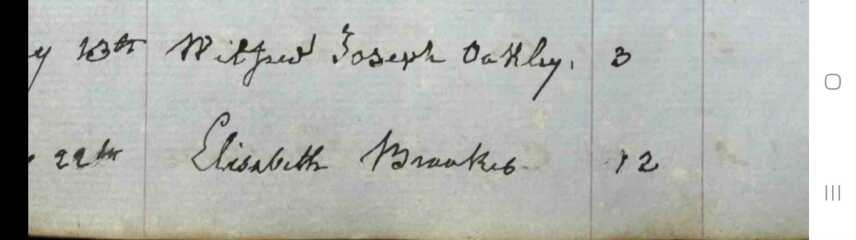 y 13th Wilfred Joseph Oakley. 3
22th Elisabeth Brookes 12